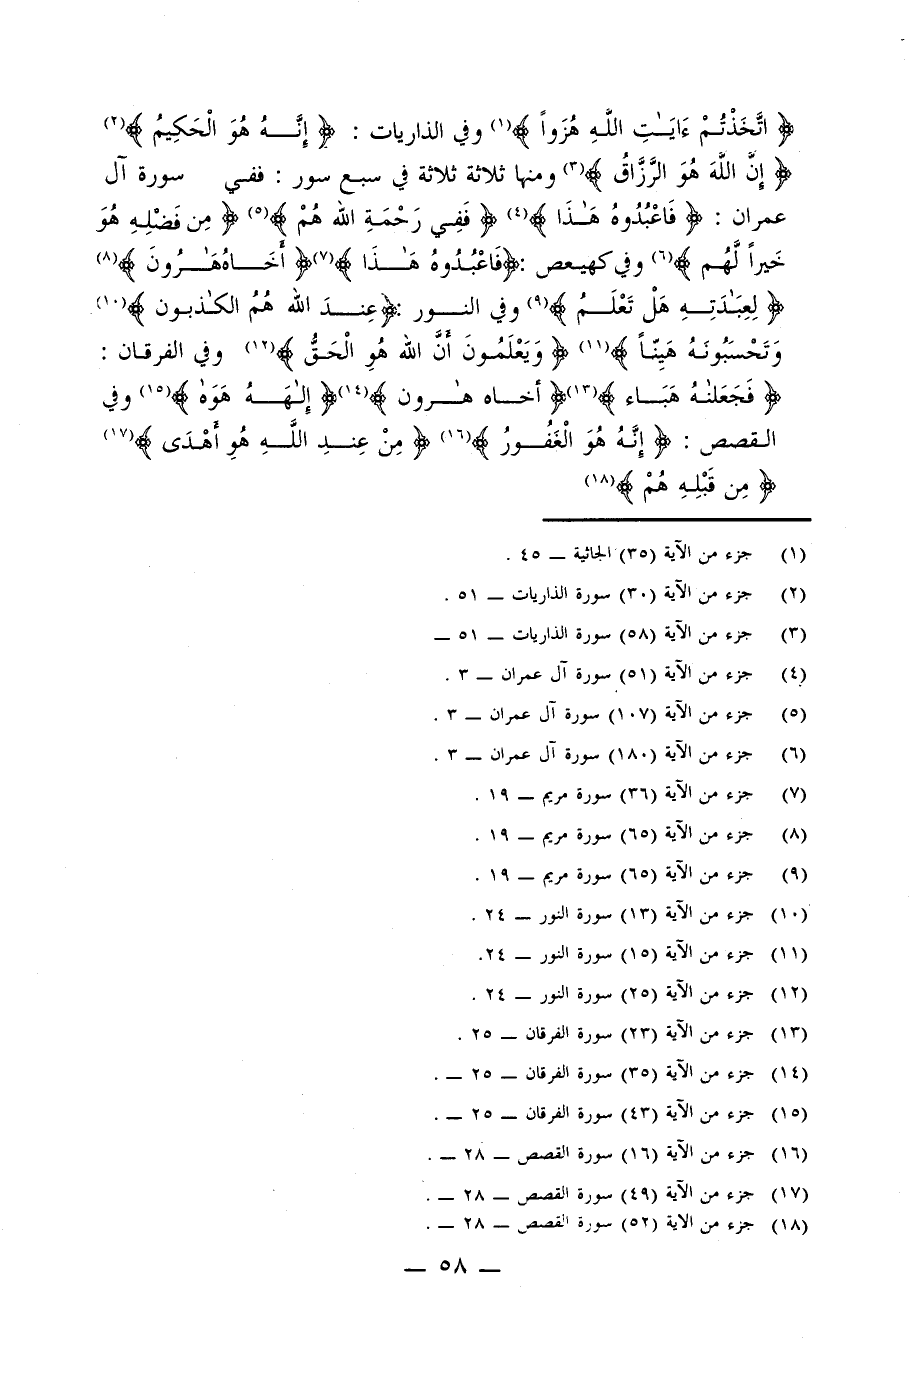 ﴿ اتَّخَذْتُمْ ءَايَـٰتِ اللَّهِ هُزُواً ﴾(١) وفي الذاريات : ﴿ إِنَّـــهُ هُوَ الْحَكِيمُ ﴾(٢)
﴿ إِنَّ اللَّهَ هُوَ الرَّزَّاقُ ﴾(٣) ومنها ثلاثة ثلاثة في سبع سور : ففي سورة آل
عمران : ﴿ فَاعْبُدُوهُ هَـٰذَا ﴾(٤) ﴿ فَفِي رَحْمَةِ اللهِ هُمْ ﴾(٥) ﴿ مِن فَضْلِهِ هُوَ
خَيراً لَّهُم ﴾(٦) وفي كهيعص :﴿فَاعْبُدُوهُ هَـٰذَا ﴾(٧)﴿ أَخَــاهُ هَـٰرُونَ ﴾(٨)
﴿ لِعِبَـٰدَتِــهِ هَلْ تَعْلَــمُ ﴾(٩) وفي النــور :﴿عِنــدَ اللهِ هُمُ الكَـٰذبون ﴾(١٠)
وَتَحْسَبُونَهُ هَيِّنـاً ﴾(١١) ﴿ وَيَعْلَمُونَ أَنَّ اللهَ هُوِ الْحَقُّ ﴾(١٢) وفي الفرقان :
﴿ فَجَعَلنٰـهُ هَبَــاء ﴾(١٣)﴿ أخــاه هـٰـرون ﴾(١٤)﴿ إِلٰـهَــهُ هَوَهٰ ﴾(١٥) وفي
القصص : ﴿ إِنَّهُ هُوَ الْغَفُورُ ﴾(١٦) ﴿ مِنْ عِنــدِ اللَّــهِ هُوِ أَهْدَى ﴾(١٧)
﴿ مِن قَبْلِهِ هُمْ ﴾(١٨)
(١) جزء من الآية (٣٥) الجاثية ــ ٤٥ .
(٢) جزء من الآية (٣٠) سورة الذاريات ــ ٥١ .
(٣) جزء من الآية (٥٨) سورة الذاريات ــ ٥١ ــ
(٤) جزء من الآية (٥١) سورة آل عمران ــ ٣ .
(٥) جزء من الآية (١٠٧) سورة آل عمران ــ ٣ .
(٦) جزء من الآية (١٨٠) سورة آل عمران ــ ٣ .
(٧) جزء من الآية (٣٦) سورة مريم ــ ١٩ .
(٨) جزء من الآية (٦٥) سورة مريم ــ ١٩ .
(٩) جزء من الآية (٦٥) سورة مريم ــ ١٩ .
(١٠) جزء من الآية (١٣) سورة النور ــ ٢٤ .
(١١) جزء من الآية (١٥) سورة النور ــ ٢٤.
(١٢) جزء من الآية (٢٥) سورة النور ــ ٢٤ .
(١٣) جزء من الآية (٢٣) سورة الفرقان ــ ٢٥ .
(١٤) جزء من الآية (٣٥) سورة الفرقان ــ ٢٥ ــ .
(١٥) جزء من الآية (٤٣) سورة الفرقان ــ ٢٥ ــ .
(١٦) جزء من الآية (١٦) سورة القصص ــ ٢٨ ــ .
(١٧) جزء من الآية (٤٩) سورة القصص ــ ٢٨ ــ .
(١٨) جزء من الاية (٥٢) سورة القصص ــ ٢٨ ــ .
ــ ٥٨ ــ